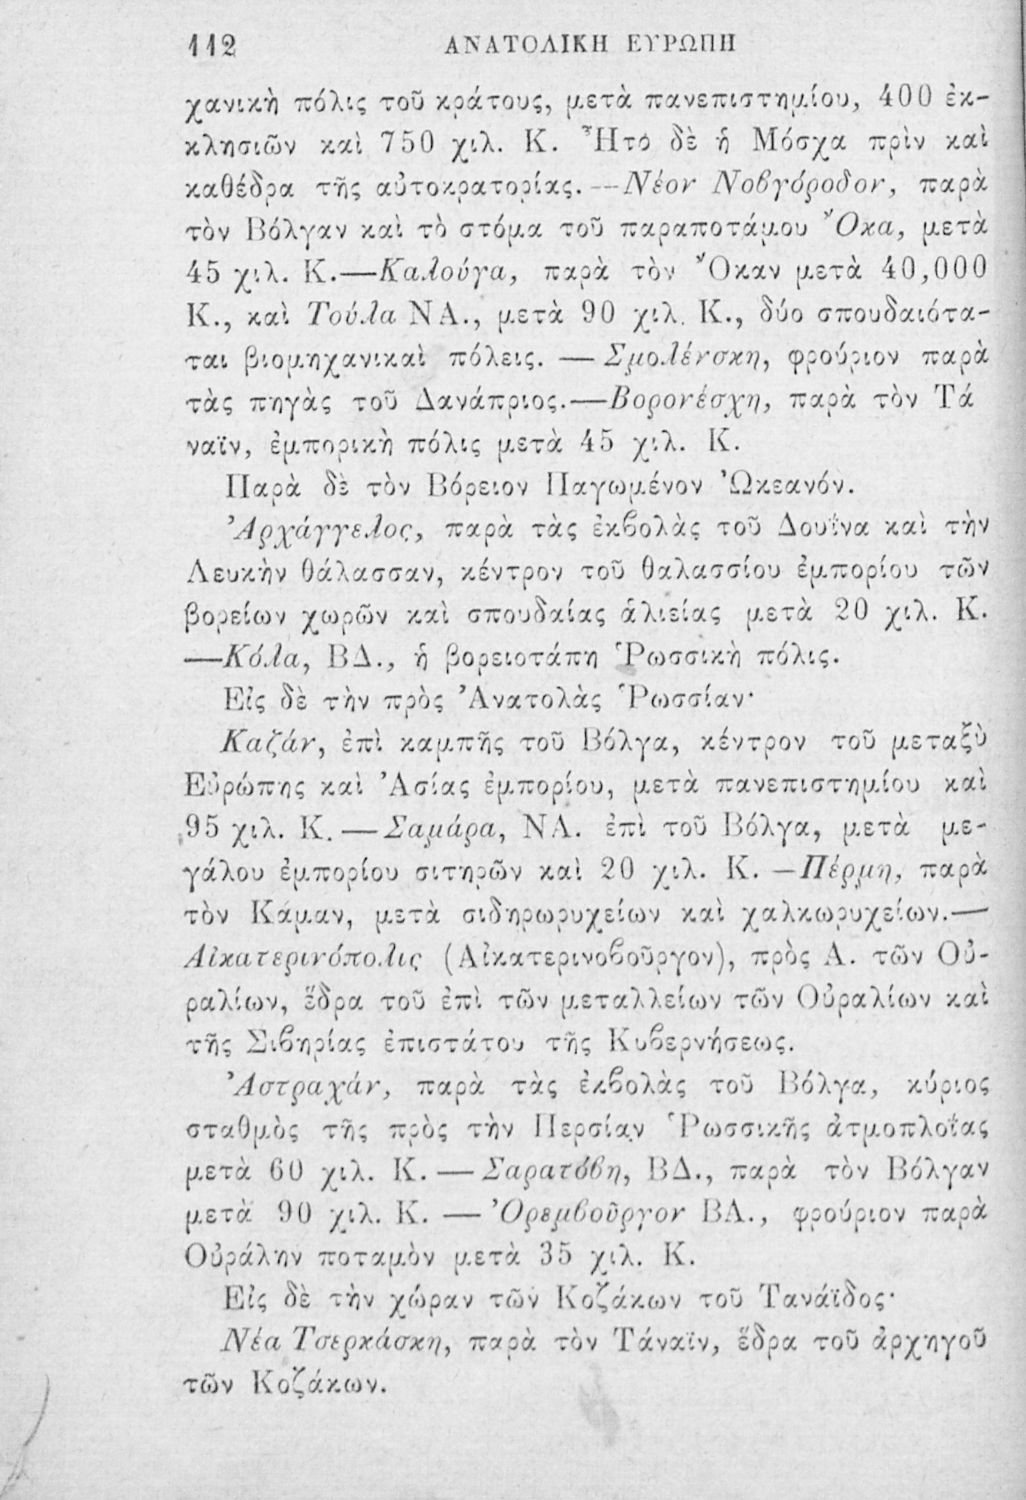 112 ΑΝΑΤΟΛΙΚΗ ΕΥΡΩΠΗ
χανικὴ πόλις τοῦ κράτους, μετὰ πανεπιστημίου, 400 ἐκ-
κλησιῶν καὶ 750 χιλ. Κ. Ἦτο δὲ ἡ Μόσχα πρὶν καὶ
καθέδρα τῆς αὐτοκρατορίας.—Νέον Νοβγόροδον, παρὰ
τὸν Βόλγαν καὶ τὸ στόμα τοῦ παραποτάμου Ὄκα, μετὰ
45 χιλ. Κ.—Καλούγα, παρὰ τὸν Ὄκαν μετὰ 40,000
Κ., καὶ Τούλα ΝΑ., μετὰ 90 χιλ. Κ., δύο σπουδαιότα-
ται βιομηχανικαὶ πόλεις. — Σμολένσκη, φρούριον παρὰ
τὰς πηγὰς τοῦ Δανάπριος.—Βορονέσχη, παρὰ τὸν Τά
ναϊν, ἐμπορικὴ πόλις μετὰ 45 χιλ. Κ.
Παρὰ δὲ τὸν Βόρειον Παγωμένον Ὠκεανόν.
Ἀρχάγγελος, παρὰ τὰς ἐκβολὰς τοῦ Δουΐνα καὶ τὴν
Λευκὴν θάλασσαν, κέντρον τοῦ θαλασσίου ἐμπορίου τῶν
βορείων χωρῶν καὶ σπουδαίας ἁλιείας μετὰ 20 χιλ. Κ.
—Κόλα, ΒΔ., ἡ βορειοτάτη Ῥωσσικὴ πόλις.
Εἰς δὲ τὴν πρὸς Ἀνατολὰς Ῥωσσίαν·
Καζάν, ἐπὶ καμπῆς τοῦ Βόλγα, κέντρον τοῦ μεταξὺ
Εὐρώπης καὶ Ἀσίας ἐμπορίου, μετὰ πανεπιστημίου καὶ
95 χιλ. Κ.—Σαμάρα, ΝΑ. ἐπὶ τοῦ Βόλγα, μετὰ με-
γάλου ἐμπορίου σιτηρῶν καὶ 20 χιλ. Κ. —Πέρμη, παρὰ
τὸν Κάμαν, μετὰ σιδηρωρυχείων καὶ χαλκωρυχείων.—
Αἰκατερινόπολις (Αἰκατερινοβοῦργον), πρὸς Α. τῶν Οὐ-
ραλίων, ἕδρα τοῦ ἐπὶ τῶν μεταλλείων τῶν Οὐραλίων καὶ
τῆς Σιβηρίας ἐπιστάτου τῆς Κυβερνήσεως.
Ἀστραχάν, παρὰ τὰς ἐκβολὰς τοῦ Βόλγα, κύριος
σταθμὸς τῆς πρὸς τὴν Περσίαν Ῥωσσικῆς ἀτμοπλοΐας
μετὰ 60 χιλ. Κ. — Σαρατόβη, ΒΔ., παρὰ τὸν Βόλγαν
μετὰ 90 χιλ. Κ. — Ὀρεμβοῦργον ΒΑ., φρούριον παρὰ
Οὐράλην ποταμὸν μετὰ 35 χιλ. Κ.
Εἰς δὲ τὴν χώραν τῶν Κοζάκων τοῦ Τανάϊδος·
Νέα Τσερκάσκη, παρὰ τὸν Τάναϊν, ἕδρα τοῦ ἀρχηγοῦ
τῶν Κοζάκων.